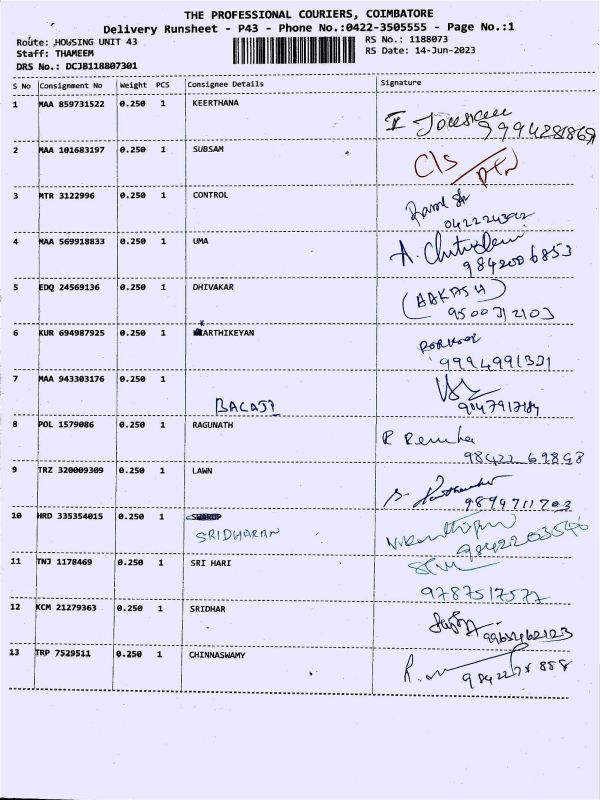 THE PROFESSIONAL COURIERS, COIMBATORE
Delivery Runsheet - P43 - Phone No.:0422-3505555 - Page No.:1
Route: ,HOWSING UNIT 43
RS No.: 1188073
Staff: THAMEEM
RS Date: 14-Jun-2023
DRS No.: DCJB118807301
S No Consignment No Weight PCS Consignee Details Signature
1 MAA 859731522 0.250 1 KEERTHANA
2 MAA 101683197 0.250 1 SUBSAM
C/S
3 MTR 3122996 0.250 1 CONTROL
4 MAA 569918833 0.250 1 UMA
9842006853
5 EDQ 24569136 0.250 1 DHIVAKAR
(AAKASH)
9500312103
6 KUR 694987925 0.250 1 KARTHIKEYAN
9994991331
7 MAA 943303176 0.250 1
BALAJI
8 POL 1579086 0.250 1 RAGUNATH
98422 69898
9 TRZ 320009309 0.250 1 LAWN
10 HRD 335354015 0.250 1 SWARUP
SRIDHARAN
11 TNJ 1178469 0.250 1 SRI HARI
9787517577
12 KCM 21279363 0.250 1 SRIDHAR
13 TRP 7529511 0.250 1 CHINNASWAMY